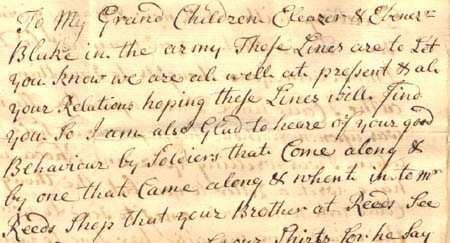 To My Grand Children Eleazer & Ebenezr
Blake in the army These Lines are to Let
you know we are al well at pressent & al
your Relations hoping these Lines will find
you So I am also Glad to heare of your good
Behaviour by Soldiers that Come along &
by one that Came along & whent in to mr
Reeds Shop that your Brother at Reeds See
your Shirts for he Say